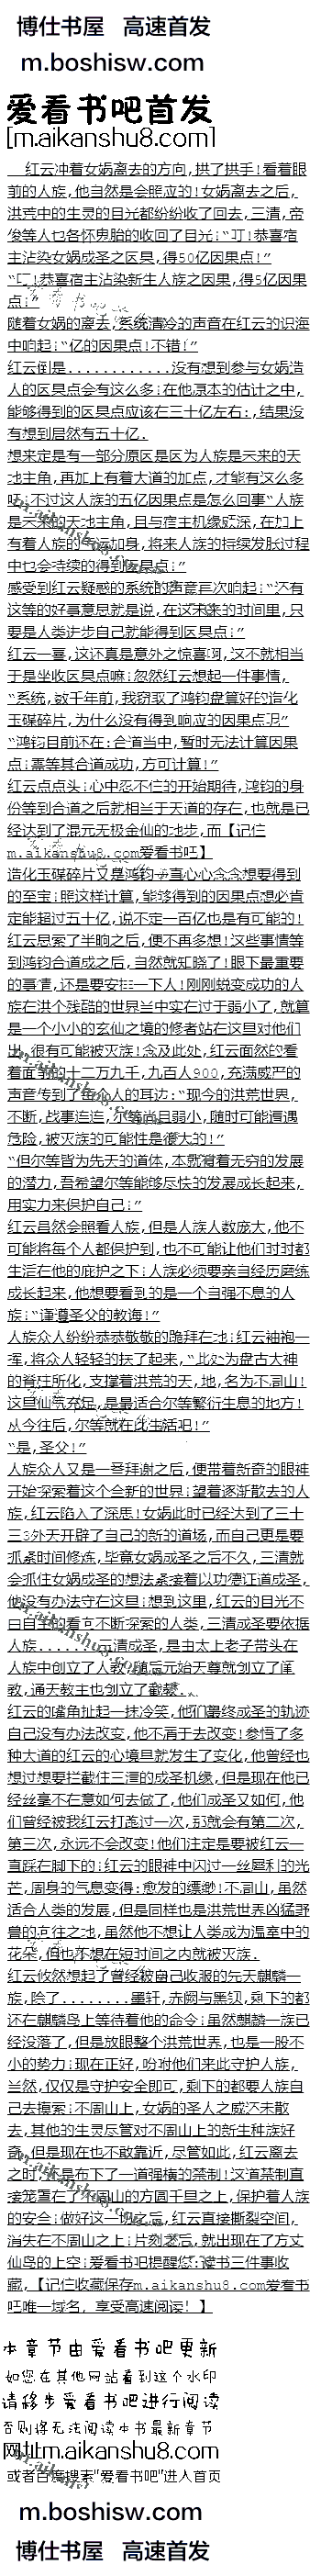 博仕书屋 高速首发
m.boshisw.com
爱看书吧首发
[m.aikanshu8.com]
红云冲着女娲离去的方向,拱了拱手!看着眼
前的人族,他自然是会照应的!女娲离去之后,
洪荒中的生灵的目光都纷纷收了回去,三清,帝
俊等人也各怀鬼胎的收回了目光:“叮!恭喜宿
主沾染女娲成圣之因果,得50亿因果点!”
“叮!恭喜宿主沾染新生人族之因果,得5亿因果
点:”
随着女娲的离去,系统清冷的声音在红云的识海
中响起:“亿的因果点!不错!”
红云倒是............没有想到参与女娲造
人的因果点会有这么多:在他原本的估计之中,
能够得到的因果点应该在三十亿左右:,结果没
有想到居然有五十亿.
想来定是有一部分原因是因为人族是未来的天
地主角,再加上有着大道的加点,才能有这么多
吧:不过这人族的五亿因果点是怎么回事“人族
是未来的天地主角,且与宿主机缘颇深,在加上
有着人族的气运加身,将来人族的持续发展过程
中也会持续的得到因果点:”
感受到红云疑惑的系统的声音再次响起:“还有
这等的好事意思就是说,在这未来的时间里,只
要是人类进步自己就能得到因果点:”
红云一喜,这还真是意外之惊喜啊,这不就相当
于是坐收因果点嘛:忽然红云想起一件事情,
“系统,数千年前,我窃取了鸿钧盘算好的造化
玉碟碎片,为什么没有得到响应的因果点呢”
“鸿钧目前还在:合道当中,暂时无法计算因果
点:需等其合道成功,方可计算!”
红云点点头:心中忍不住的开始期待,鸿钧的身
份等到合道之后就相当于天道的存在,也就是已
经达到了混元无极金仙的地步,而【记住
m.aikanshu8.com爱看书吧】
造化玉碟碎片又是鸿钧一直心心念念想要得到
的至宝:照这样计算,能够得到的因果点想必肯
定能超过五十亿,说不定一百亿也是有可能的!
红云思索了半晌之后,便不再多想!这些事情等
到鸿钧合道成之后,当然就知晓了!眼下最重要
的事情,还是要安排一下人!刚刚蜕变成功的人
族在洪个残酷的世界当中实在过于弱小了,就算
是一个小小的玄仙之境的修者站在这里对他们
出,很有可能被灭族!念及此处,红云面然的看
着面前的十二万九千,九百人900,充满威严的
声音传到了每个人的耳边:“现今的洪荒世界,
不断,战事连连,尔等尚且弱小,随时可能遭遇
危险,被灭族的可能性是很大的!”
“但尔等皆为先天的道体,本就有着无穷的发展
的潜力,吾希望尔等能够尽快的发展成长起来,
用实力来保护自己:”
红云虽然会照看人族,但是人族人数庞大,他不
可能将每个人都保护到,也不可能让他们时时都
生活在他的庇护之下:人族必须要亲自经历磨练
成长起来,他想要看到的是一个自强不息的人
族:“谨遵圣父的教诲!”
人族众人纷纷恭恭敬敬的跪拜在地:红云袖袍一
挥,将众人轻轻的扶了起来,“此处为盘古大神
的脊柱所化,支撑着洪荒的天,地,名为不周山!
这里仙气充足,是最适合尔等繁衍生息的地方!
从今往后,尔等就在此生活吧!”
“是,圣父!”
人族众人又是一番拜谢之后,便带着新奇的眼神
开始探索着这个全新的世界:望着逐渐散去的人
族,红云陷入了深思!女娲此时已经达到了三十
三3外天开辟了自己的新的道场,而自己更是要
抓紧时间修炼,毕竟女娲成圣之后不久,三清就
会抓住女娲成圣的想法紧接着以功德证道成圣,
他没有办法守在这里:想到这里,红云的目光不
由自主的看向不断探索的人类,三清成圣要依据
人族.......三清成圣,是由太上老子带头在
人族中创立了人教,随后元始天尊就创立了阐
教,通天教主也创立了截教.
红云的嘴角扯起一抹冷笑,他们最终成圣的轨迹
自己没有办法改变,他不屑于去改变!参悟了多
种大道的红云的心境早就发生了变化,他曾经也
想过想要拦截住三清的成圣机缘,但是现在他已
经丝毫不在意如何去做了,他们成圣又如何,他
们曾经被我红云打跪过一次,那就会有第二次,
第三次,永远不会改变!他们注定是要被红云一
直踩在脚下的:红云的眼神中闪过一丝犀利的光
芒,周身的气息变得:愈发的缥缈!不周山,虽然
适合人类的发展,但是同样也是洪荒世界凶猛野
兽的向往之地,虽然他不想让人类成为温室中的
花朵,但也不想在短时间之内就被灭族.
红云攸然想起了曾经被自己收服的先天麒麟一
族,除了........墨轩,赤阙与黑钡,剩下的都
还在麒麟鸟上等待着他的命令:虽然麒麟一族已
经没落了,但是放眼整个洪荒世界,也是一股不
小的势力:现在正好,吩咐他们来此守护人族,
当然,仅仅是守护安全即可,剩下的都要人族自
己去摸索:不周山上,女娲的圣人之威还未散
去,其他的生灵尽管对不周山上的新生种族好
奇,但是现在也不敢靠近,尽管如此,红云离去
之时,还是布下了一道强横的禁制!这道禁制直
接笼罩在了不周山的方圆千里之上,保护着人族
的安全:做好这一切之后,红云直接撕裂空间,
消失在不周山之上:片刻之后,就出现在了方丈
仙岛的上空:爱看书吧提醒您:读书三件事收
藏,【记住收藏保存m.aikanshu8.com爱看书
吧唯一域名，享受高速阅读！】
本章节由爱看书吧更新
如您在其他网站看到这个水印
请移步爱看书吧进行阅读
否则将无法阅读本书最新章节
网址m.aikanshu8.com
或者百度搜索“爱看书吧”进入首页
m.boshisw.com
博仕书屋 高速首发